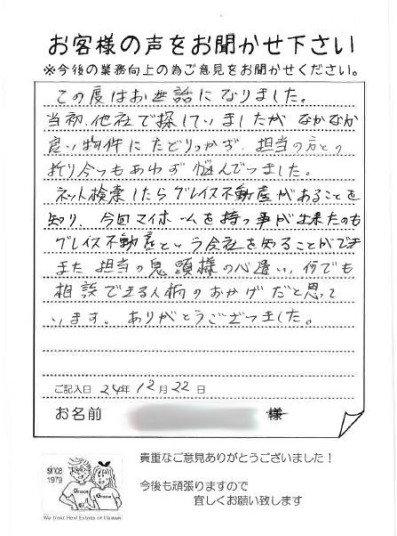 お客様の声をお聞かせ下さい
※今後の業務向上の為ご意見をお聞かせください。
この度はお世話になりました。
当初、他社で探していましたがなかなか
良い物件にたどりつかず、担当の方との
折り合いもあわず悩んでいました。
ネット検索したらグレイス不動産があることを
知り、今回マイホームを持つ事が出来たのも
グレイス不動産という会社を知ることができ
また担当の鬼頭様の心遣い、何でも
相談できる人柄のおかげだと思って
います。ありがとうございました。
ご記入日 24年 12月 22日
お名前 様
since
1979
貴重なご意見ありがとうございました!
今後も頑張りますので
宜しくお願い致します